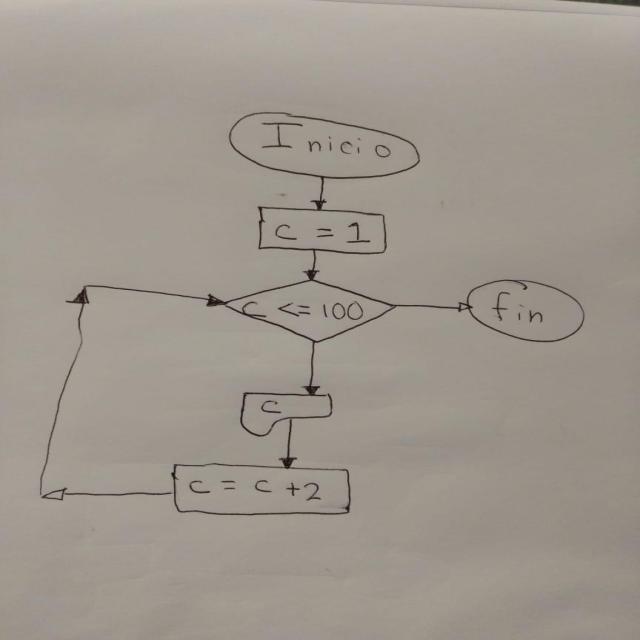 Inicio
c = 1
c <= 100
fin
c
c = c +2